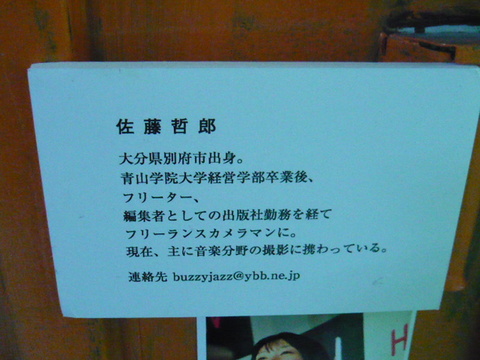 佐藤哲郎
大分県別府市出身。
青山学院大学経営学部卒業後、
フリーター、
編集者としての出版社勤務を経て
フリーランスカメラマンに。
現在、主に音楽分野の撮影に携わっている。
連絡先 buzzyjazz@ybb.ne.jp
H